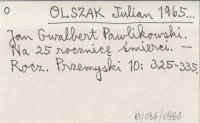 O OLSZAK Julian 1965...
Jan Gwalbert Pawlikowski.
Na 25 rocznicę śmierci. —
Rocz. Przemyski 10: 325-335.